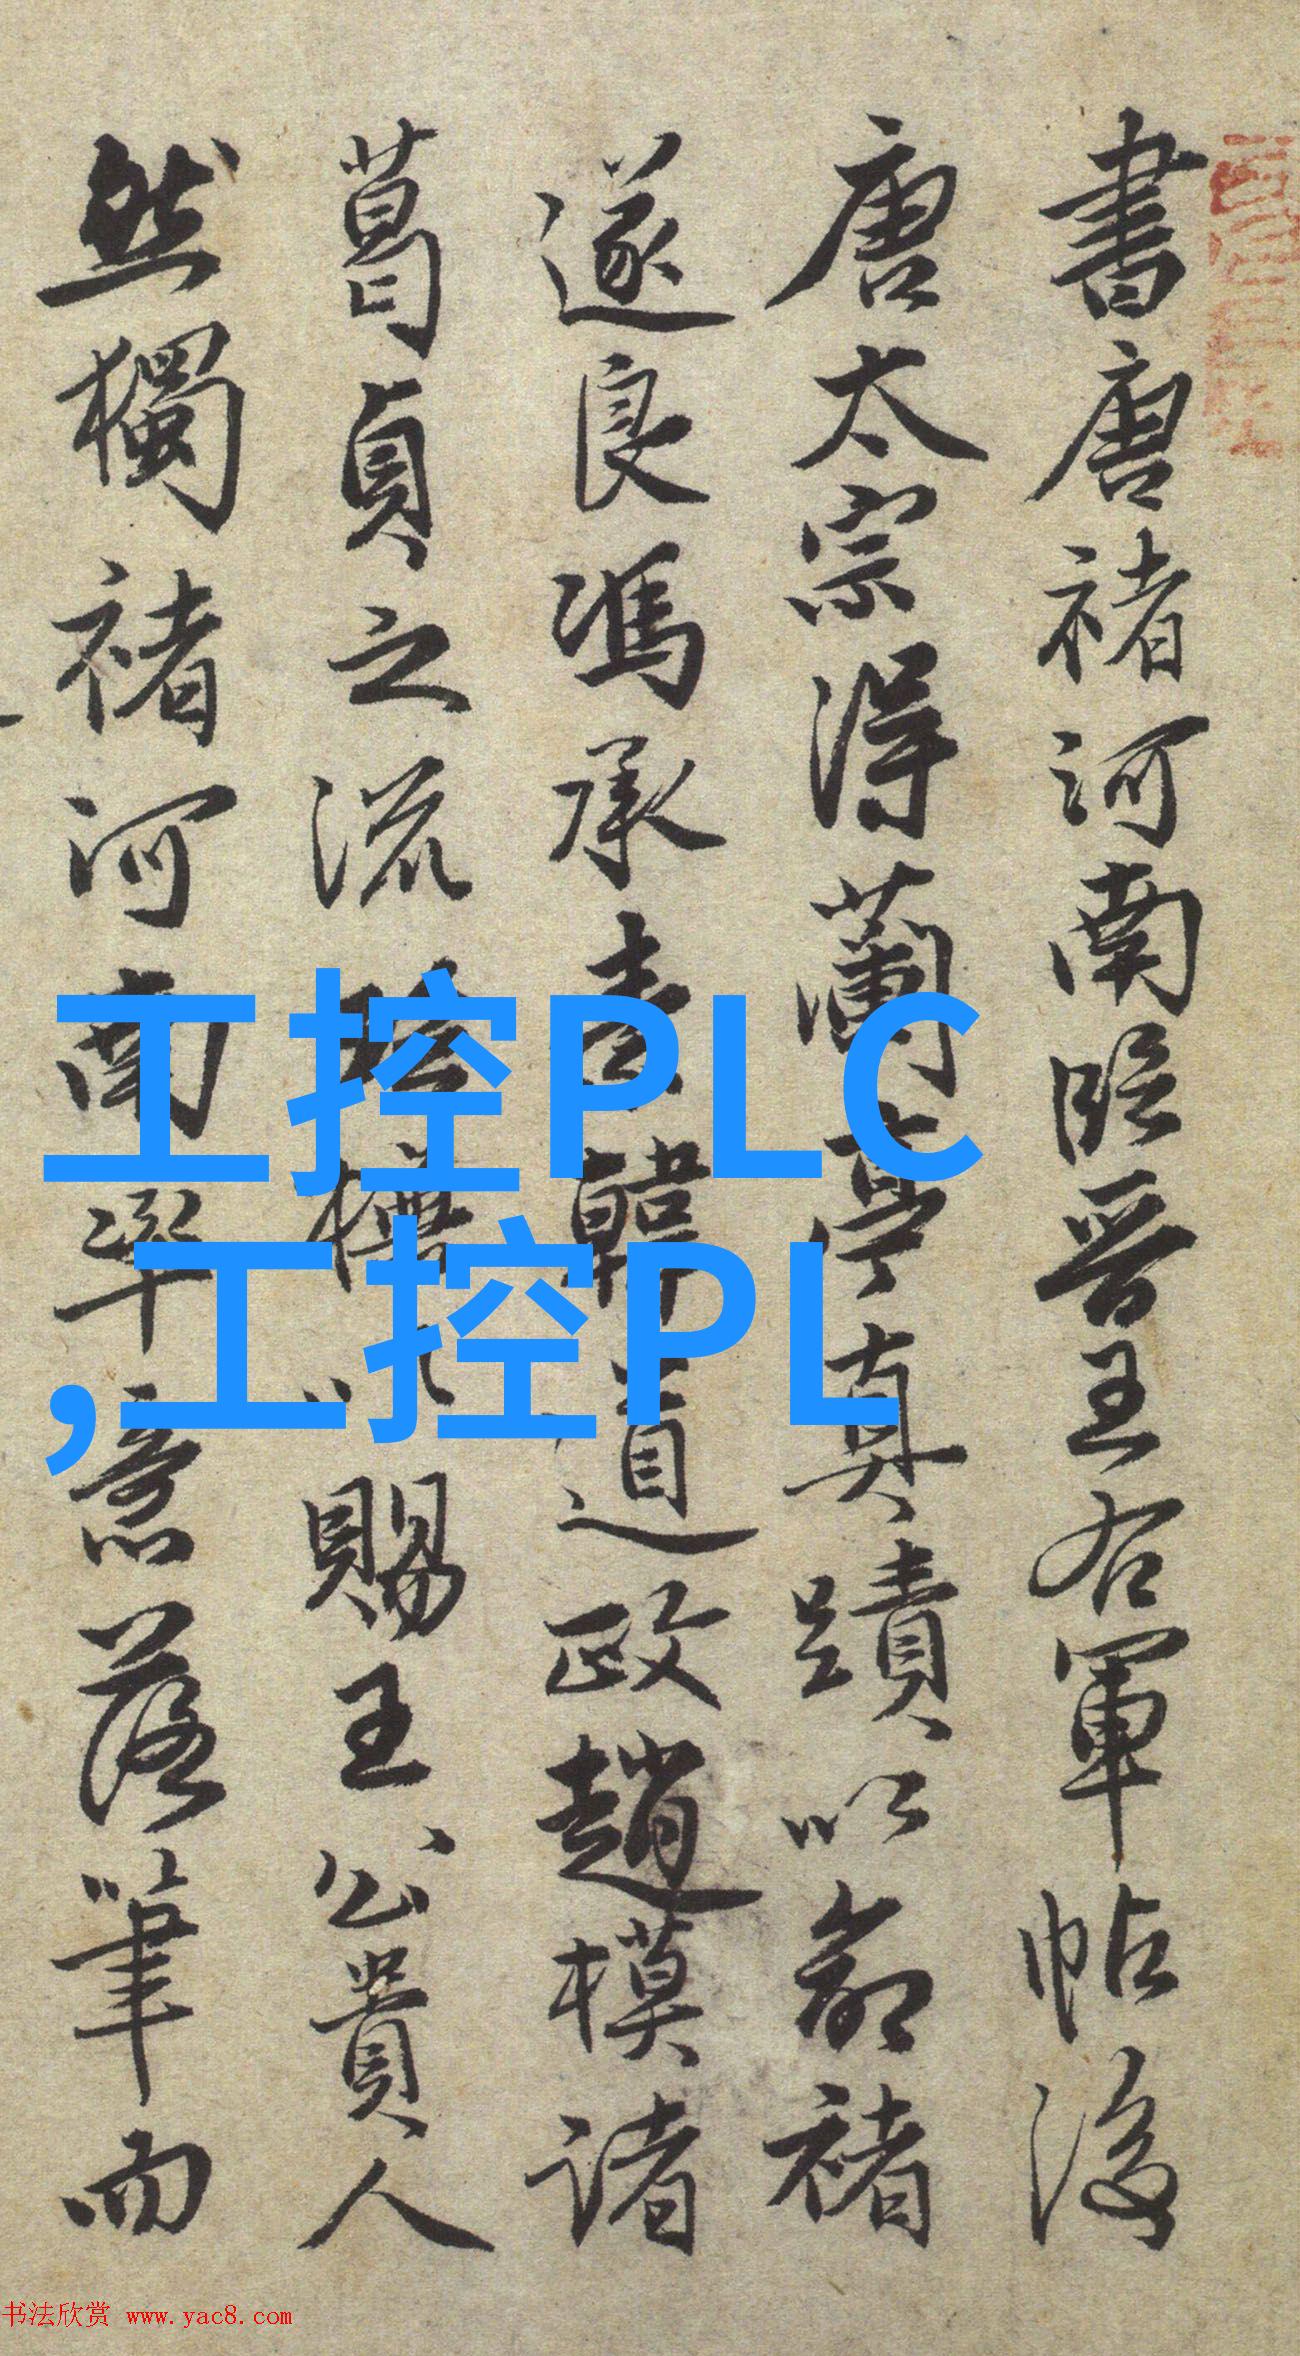 書唐褚河南臨晉王右軍帖後
唐太宗得蘭亭真蹟以命褚
遂良馮承素韓道政趙模諸
葛貞之流 賜王公貴人
然獨褚河南率意落筆而
工控PLC
,工控PL
书法欣赏 www.yac8.com